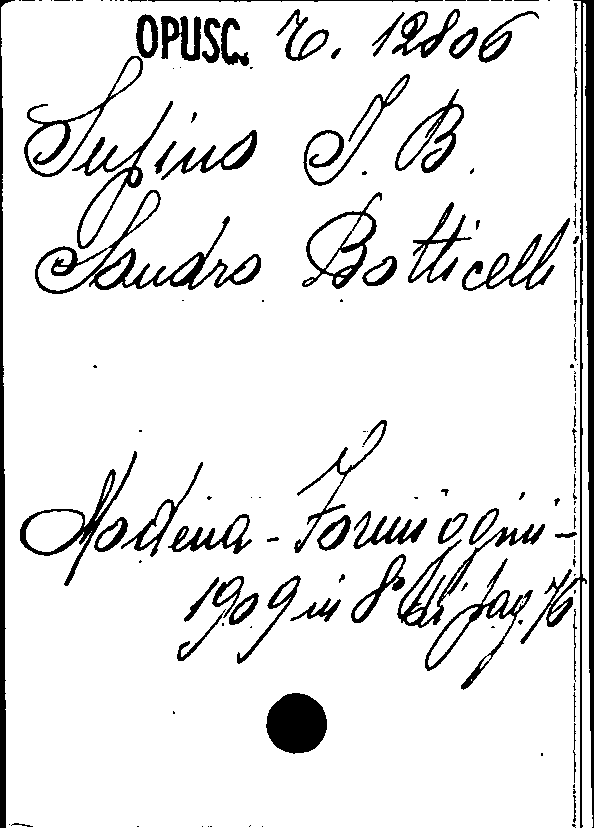 OPUSC. C. 12806
Supino I. B.
Sandro Botticelli
Modena - Formiggini -
1909 in 8° di pag. 76